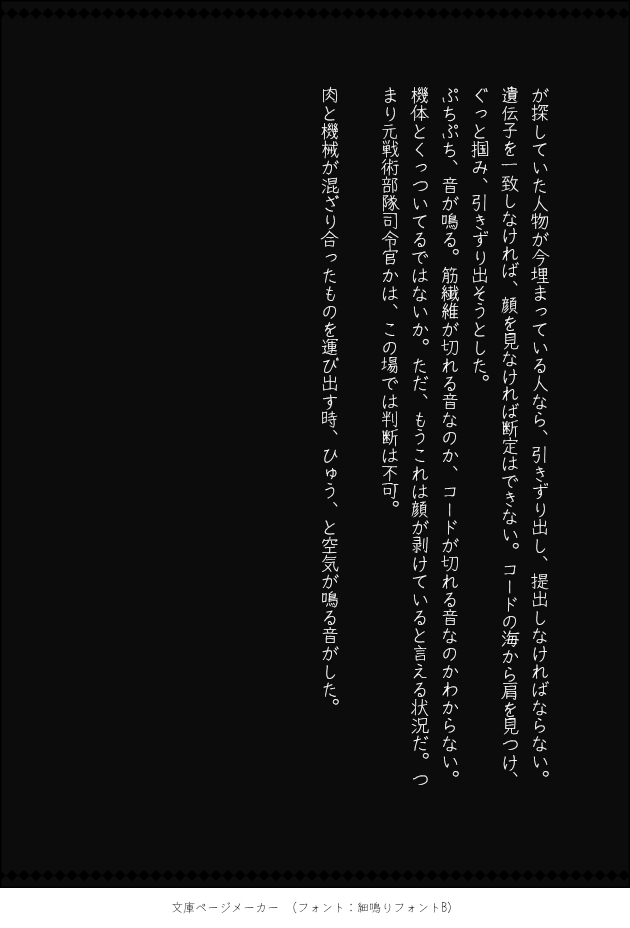 が探していた人物が今埋まっている人なら、引きずり出し、提出しなければならない。
遺伝子を一致しなければ、顔を見なければ断定はできない。コードの海から肩を見つけ、
ぐっと掴み、引きずり出そうとした。
ぷちぷち、音が鳴る。筋繊維が切れる音なのか、コードが切れる音なのかわからない。
機体とくっついてるではないか。ただ、もうこれは顔が剥けていると言える状況だ。つ
まり元戦術部隊司令官かは、この場では判断は不可。
肉と機械が混ざり合ったものを運び出す時、ひゅう、と空気が鳴る音がした。
文庫ページメーカー （フォント：細鳴りフォントB）